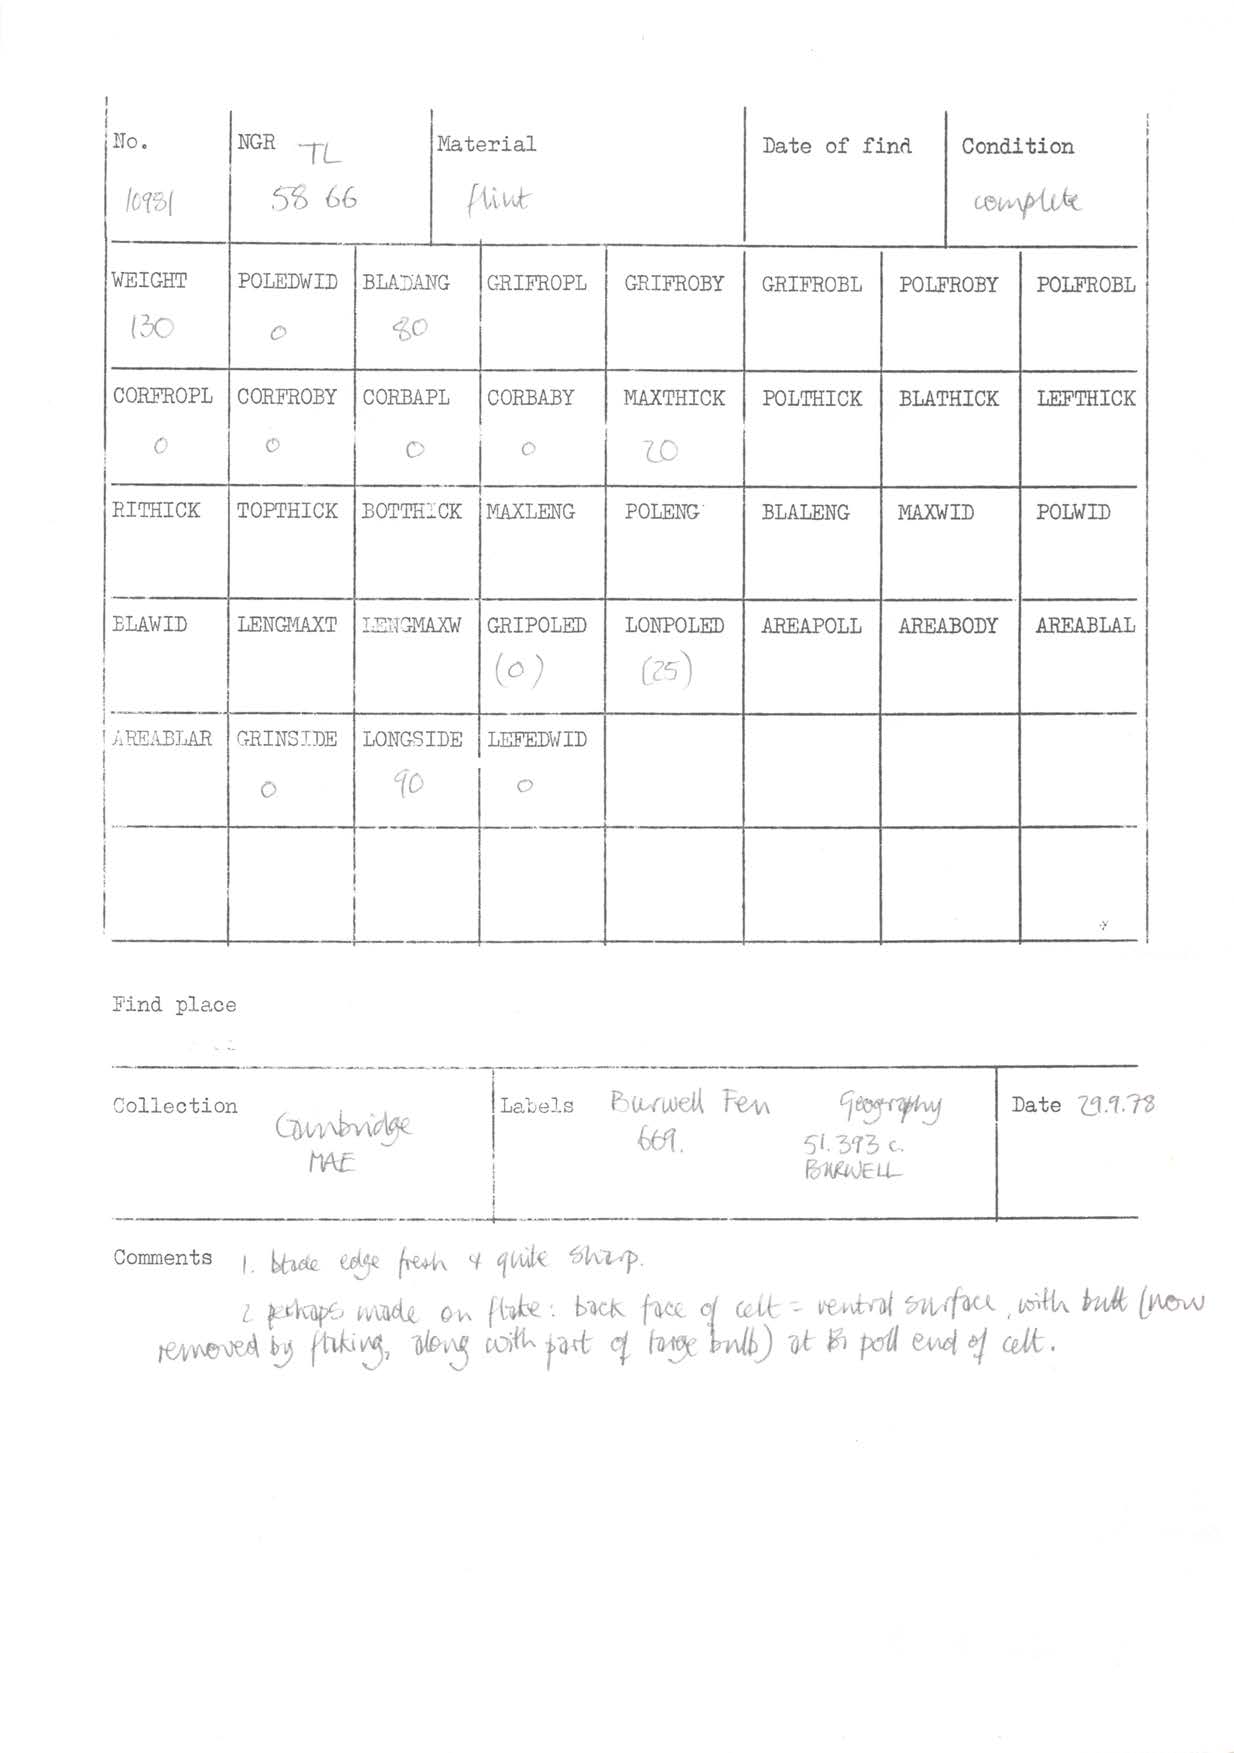 No. NGR TL Material Date of find Condition
10931 58 66 flint complete
WEIGHT POLEDWID BLADANG GRIFROPL GRIFROBY GRIFROBL POLFROBY POLFROBL
130 0 80
CORFROPL CORFROBY CORBAPL CORBABY MAXTHICK POLTHICK BLATHICK LEFTHICK
0 0 0 0 20
RITHICK TOPTHICK BOTTHICK MAXLENG POLENG BLALENG MAXWID POLWID
BLAWID LENGMAXT LENGMAXW GRIPOLED LONPOLED AREAPOLL AREABODY AREABLAL
(0) (25)
AREABLAR GRINSIDE LONGSIDE LEFEDWID
0 90 0
Find place
Collection Cambridge Labels Burwell Fen Geography Date 29.9.78
MAE 669. 51.393 c.
BURWELL
Comments 1. blade edge fresh & quite sharp.
2 perhaps made on flake: back face of celt = ventral surface, with butt (now
removed by flaking, along with part of large bulb) at poll end of celt.